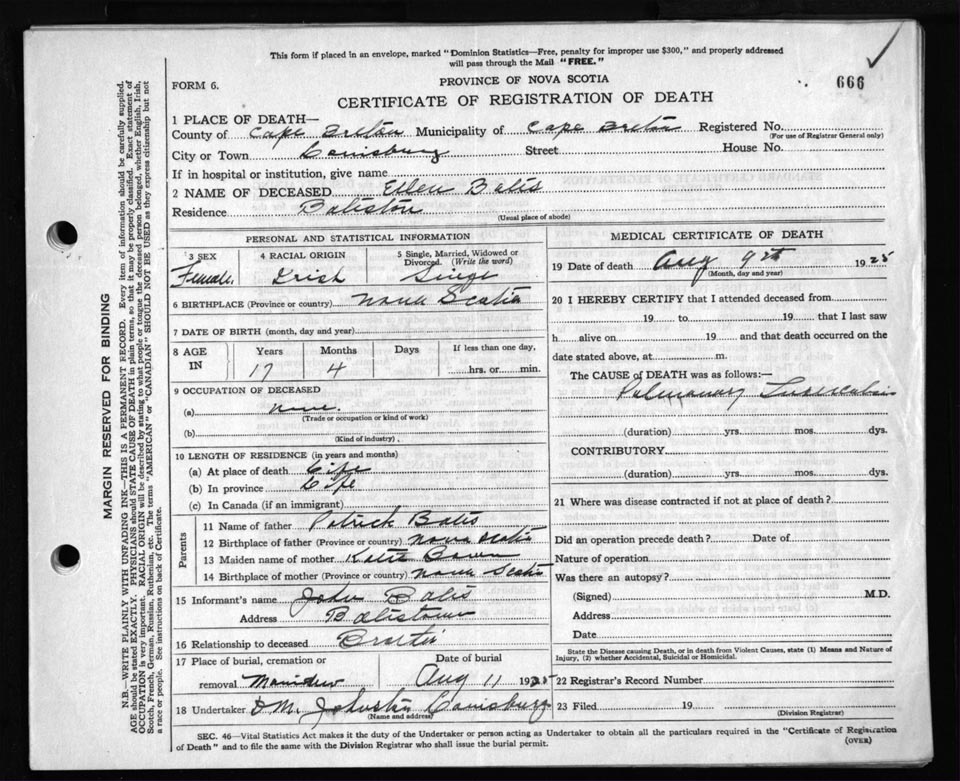 This form if placed in an envelope, marked "Dominion Statistics—Free, penalty for improper use $300," and properly addressed
will pass through the Mail "FREE."
FORM 6.
PROVINCE OF NOVA SCOTIA
666
CERTIFICATE OF REGISTRATION OF DEATH
1 PLACE OF DEATH—
County of Cape Breton Municipality of Cape Breton Registered No.
(For use of Registrar General only)
City or Town Louisburg Street House No.
If in hospital or institution, give name
2 NAME OF DECEASED Ellen Bates
Residence
(Usual place of abode)
PERSONAL AND STATISTICAL INFORMATION
3 SEX 4 RACIAL ORIGIN 5 Single, Married, Widowed or
Divorced. (Write the word)
Female Irish Single
6 BIRTHPLACE (Province or country) Nova Scotia
7 DATE OF BIRTH (month, day and year)
8 AGE IN Years Months Days If less than one day,
17 4 hrs. or min.
9 OCCUPATION OF DECEASED
(a) none.
(Trade or occupation or kind of work)
(b)
(Kind of industry)
10 LENGTH OF RESIDENCE (in years and months)
(a) At place of death Life
(b) In province Life
(c) In Canada (if an immigrant)
Parents
11 Name of father Patrick Bates
12 Birthplace of father (Province or country) Nova Scotia
13 Maiden name of mother Katie
14 Birthplace of mother (Province or country) Nova Scotia
15 Informant's name John Bates
Address
16 Relationship to deceased Brother
17 Place of burial, cremation or Date of burial
removal Aug 11 19
18 Undertaker D M. Johnston Louisburg
(Name and address)
MEDICAL CERTIFICATE OF DEATH
19 Date of death Aug 9th 19
(Month, day and year)
20 I HEREBY CERTIFY that I attended deceased from
19 to 19 that I last saw
h alive on 19 and that death occurred on the
date stated above, at m.
The CAUSE OF DEATH was as follows:—
Pulmonary Tuberculosis
(duration) yrs. mos. dys.
CONTRIBUTORY
(duration) yrs. mos. dys.
21 Where was disease contracted if not at place of death?
Did an operation precede death? Date of
Nature of operation
Was there an autopsy?
(Signed) M.D.
Address
Date
State the Disease causing Death, or in death from Violent Causes, state (1) Means and Nature of
Injury, (2) whether Accidental, Suicidal or Homicidal.
22 Registrar's Record Number
23 Filed 19
(Division Registrar)
SEC. 46—Vital Statistics Act makes it the duty of the Undertaker or person acting as Undertaker to obtain all the particulars required in the "Certificate of Registration
of Death" and to file the same with the Division Registrar who shall issue the burial permit.
(OVER)
MARGIN RESERVED FOR BINDING
N.B.—WRITE PLAINLY WITH UNFADING INK—THIS IS A PERMANENT RECORD. Every item of information should be carefully supplied.
AGE should be stated EXACTLY. PHYSICIANS should STATE CAUSE OF DEATH in plain terms, so that it may be properly classified. Exact statement of
OCCUPATION is very important. RACIAL ORIGIN will be described by stating to what people or tongue the deceased person belonged, whether English, Irish,
Scotch, French, German, Russian, Ruthenian, etc. The terms "AMERICAN" or "CANADIAN" SHOULD NOT BE USED as they express citizenship but not
a race or people. See instructions on back of Certificate.